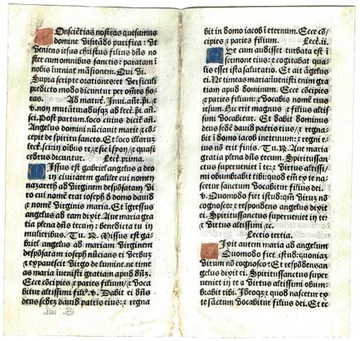 Conscietias nostras quesumus
domine visitado purifica: vt
veniens iesus christus filius dn̄s no
ster cum omnibus sanctis: paratam i
nobis inueniat māsionem. Qui vi.
Supra scripte orationes seculi
predicto modo dicuntur per om̄es ho
ras.
sci. Post partum. loco cuius dicit̄ añ.
Angelus domini nūciauit marie ⁊ cō-
cepit de spiritu sancto. Et loco
credtur dicuntur. Lectio prima.
Missus est gabriel angelus a deo
in ciuitatem galilee cui nomen
nazareth ad virginem despōsatam vi
ro cui nomē erat ioseph d̄ domo dauid
⁊ nomē virginis maria. Et ingressus
angelus ad eam dixit. Aue maria gra
tia plena dn̄s tecum: benedicta tu in
mulieribus. Tu. R. Missus est ga-
briel angelus ad mariam virginem
desponsatam ioseph nūcians ei verbuȝ
⁊ expauescit virgo de lumine. ne time
as maria inuenisti gratiam apud dn̄ȝ.
Ecce cōcipies ⁊ paries filium: ⁊ voca
bitur altissimi fili⁹. v. Dabit ei dn̄s
deus sedeȝ dauid patris eius: ⁊ regna
bit in domo iacob i eternum. Ecce cō
cipies ⁊ paries filium. Lect. ii.
Que cum audisset turbata est i
sermone eius: ⁊ cogitabat qua-
lis esset ista salutatio. Et ait āgelus ei.
Ne timeas maria inuenisti em̄ grati-
am apud dominum. Ecce concipies
⁊ paries filium: ⁊ vocabis nomē eius
iesum. hic erit magnus ⁊ filius altissi
mi vocabitur. Et dabit ei dominus
deus sedē dauid patris eius: ⁊ regna-
bit i domo iacob i eternum: ⁊ regni ei⁹
nō erit finis. Tu. R. Aue maria
gratia plena dn̄s tecum. Spiritussanct⁹
superueniet i te: ⁊ virtus altissi-
mi obumbrabit tibi quod em̄ ex te na
scetur sanctum vocabitur filius dei.
v. Quomodo fiet istud: qm̄ virum nō
cognosco: ⁊ respondens angelus dixit
ei. Spiritussanctus superueniet in te
⁊ virtus al.
Lectio tertia.
Dixit autem maria ad angelum
Quomodo fiet istud: quoniaȝ
virum nō cognosco? Et respōdens an
gelus dixit ei. Spiritussanctus super
ueniet i te ⁊ virtus altissimi obum-
brabit tibi. Ideoqȝ ⁊ quod nascetur ex
te sāctum vocabitur filius dei. Et ec